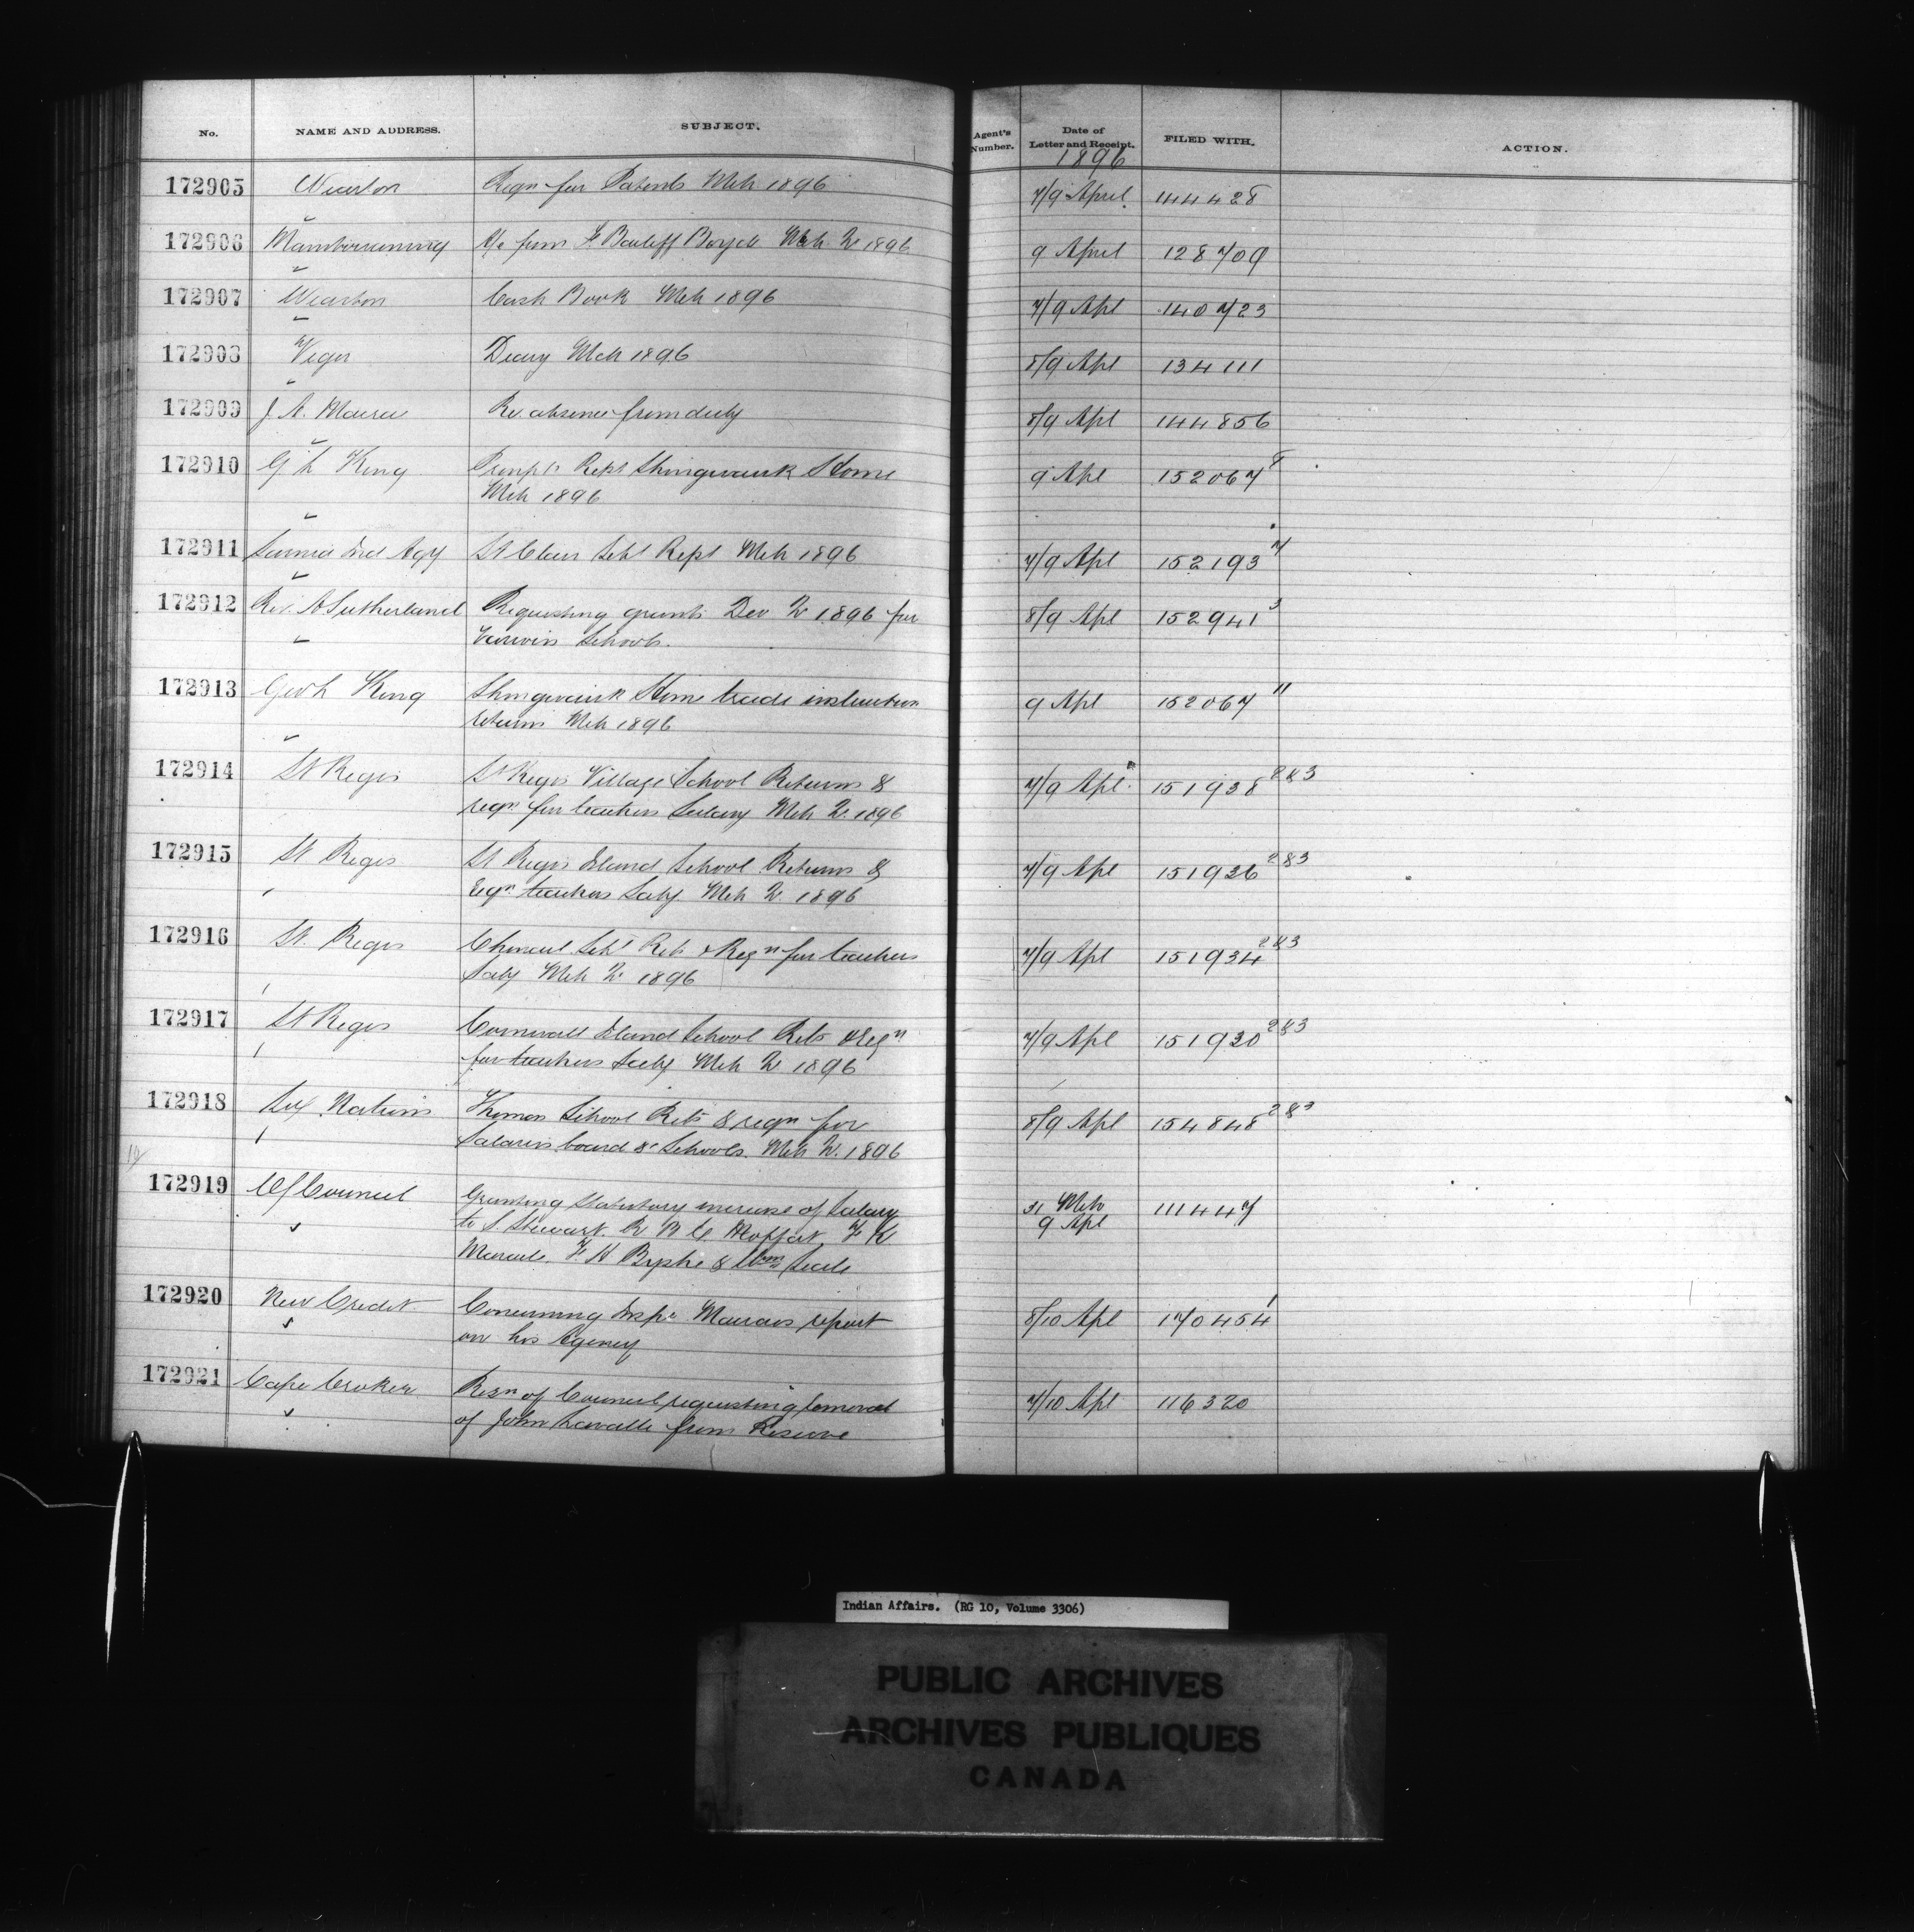 No. NAME AND ADDRESS. SUBJECT. Agent's Number. Date of Letter and Receipt. FILED WITH. ACTION.
1896
172905 Wiarton Reqn for Patents Mch 1896 7/9 April 144428
172906 a/c from Mch Qr 1896 9 April 128709
172907 Wiarton Cash Book Mch 1896 7/9 Apl 140723
172908 Viger Diary Mch 1896 8/9 Apl 134111
172909 J. A. Macrae Re. absence from duty 8/9 Apl 144856
172910 G L King Prinpls Rept Shingwauk Home 9 Apl 152067 8
Mch 1896
172911 Sarnia Ind Agy St Clair Schl Rept Mch 1896 7/9 Apl 152193 7
172912 Rev. A Sutherland Requesting grants Dec Qr 1896 for 8/9 Apl 152941 3
various Schools.
172913 Geo L King Shingwauk Home trade instruction 9 Apl 152067 11
returns Mch 1896
172914 St Regis St Regis Village School Returns & 7/9 Apl 151938 2&3
reqn for teachers Salary Mch Qr. 1896
172915 St Regis St Regis Island School Returns & 7/9 Apl 151926 2&3
reqn teachers Saly Mch Qr. 1896
172916 St. Regis Chenail Schl Rets & Reqn for teachers 7/9 Apl 151934 2&3
Saly Mch Qr 1896
172917 St Regis Cornwall Island School Rets & reqn 7/9 Apl 151930 2&3
for teachers Saly Mch Qr 1896
172918 Six Nations Thomas School Rets & reqn for 8/9 Apl 154848 2&3
Salaries board &c Schools. Mch Qr. 1896
172919 O/Council Granting Statutory increase of Salary 31 Mch 111447
to S. Stewart. R. B. C. Moffat, F R 9 Apl
F. H. Byshe & Wm Seale
172920 New Credit Concerning Inspr Macraes report 8/10 Apl 170454 1
on his Agency
172921 Cape Croker Resn of Council requesting removal 7/10 Apl 116320
of John Lavalle from Reserve
Indian Affairs. (RG 10, Volume 3306)
PUBLIC ARCHIVES
ARCHIVES PUBLIQUES
CANADA